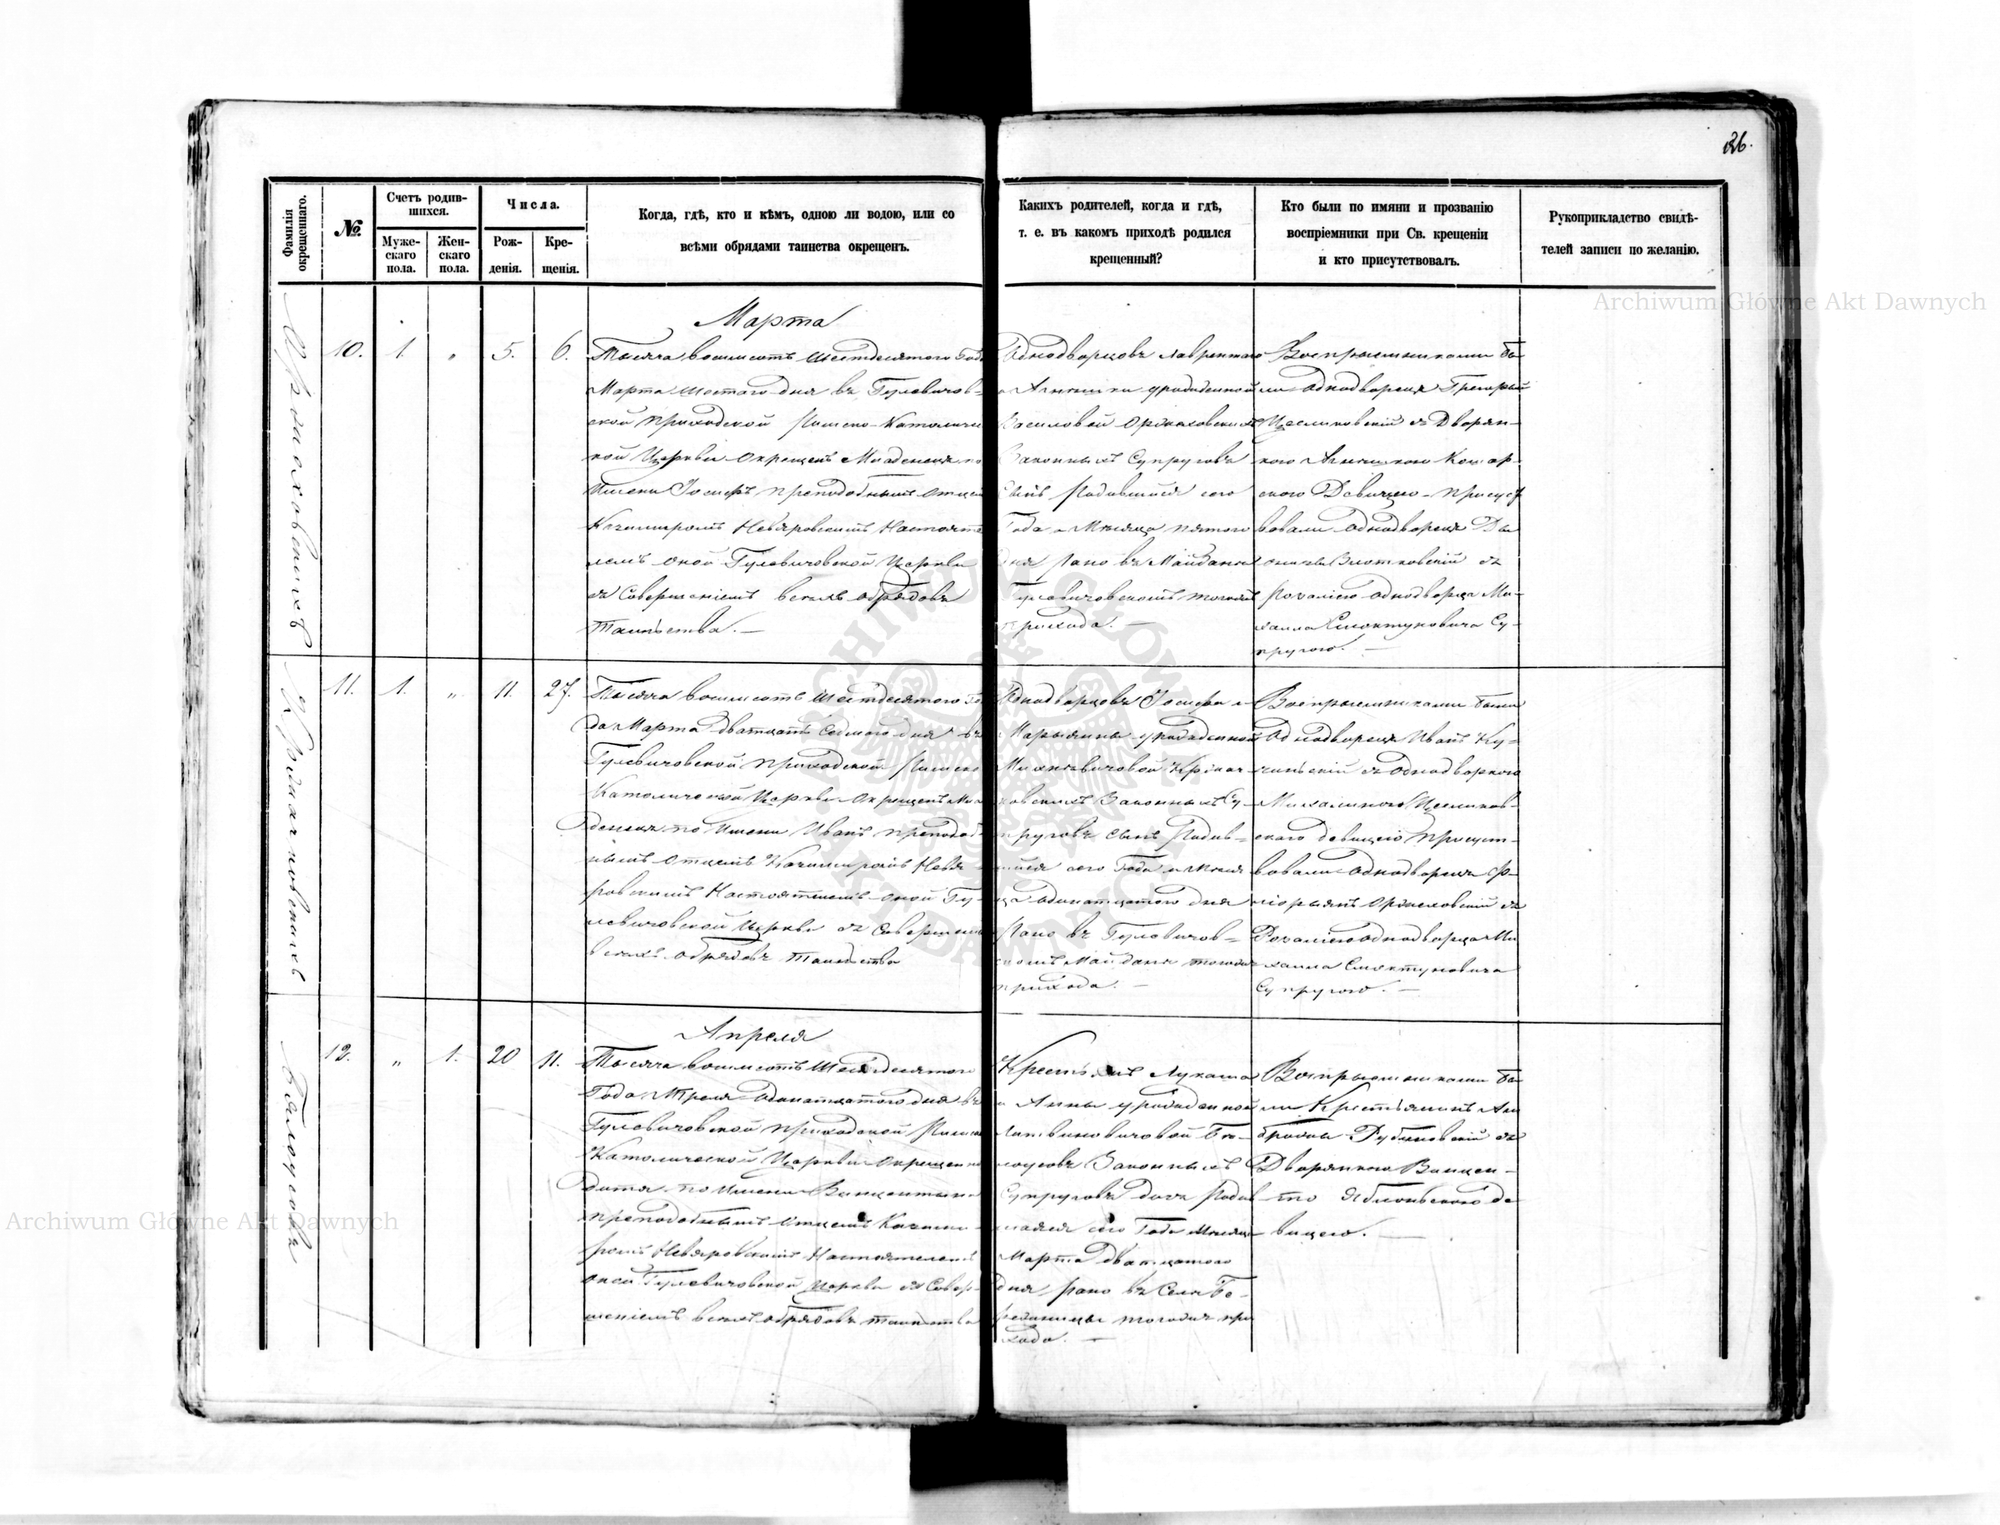 26.
Фамилія окрещеннаго.
№.
Счетъ родив-
шихся.
Муже-
скаго
пола.
Жен-
скаго
пола.
Числа.
Рож-
денія.
Кре-
щенія.
Когда, гдѣ, кто и кѣмъ, одною ли водою, или со
всѣми обрядами таинства окрещенъ.
Какихъ родителей, когда и гдѣ,
т. е. въ какомъ приходѣ родился
крещенный?
Кто были по имяни и прозванію
воспріемники при Св. крещеніи
и кто присутствовалъ.
Рукоприкладство свидѣ-
телей записи по желанію.
Archiwum Główne Akt Dawnych
Марта
10. 1. „ 5. 6.
Тысяча восемсотъ шестдесятого Года
Марта шестого дня въ Гулевичов-
ской приходской Римско-Католичес
кой Церкви окрещенъ Младенецъ по
Имени Іосифъ преподобнымъ Отцем
Казимиромъ Невяровскимъ Настояте
лемъ оной Гулевичовской Церкви
съ Совершеніемъ всехъ обрядовъ
Таинства. —
Однодворцовъ Лаврентого
и Аннышки урожденной
Законныхъ Супруговъ
Сынъ Родившійся сего
Года и Месяца пятого
дня рано въ Майдане
Гулевичовскомъ тогожъ
прихода. —
Воспрыемниками бы-
ли однодворецъ Грегорый
Цесликовскій съ Дворян-
кою
Девицею - присуст
вовали однодворецъ
съ
Розаліею однодворца Ми-
хаила Смоктуновича Су-
пругою. —
11. 1. „ 11. 27.
Тысяча восемсотъ шестдесятого Го
да Марта дватцать седмого дня въ
Гулевичовской приходской Римско
Католической Церкви окрещенъ Мла
денецъ по Имени Иванъ преподоб
нымъ Отцемъ Казимиромъ Невя
ровскимъ Настоятелемъ оной Гу-
левичовской Церкви съ Совершен
всехъ обрядовъ Таинства
Однодворцовъ Іосифа и
Марьянны урожденной
ковскихъ Законныхъ Су-
пруговъ сынъ Родив-
шійся сего Года и Меся
ца одинатцатого дня
Рано въ Гулевичов-
скомъ Майдане тогожъ
прихода. —
Воспрыемниками были
Однодворецъ Иванъ Ку-
чинскій съ однодворкою
Михалиною Цесликов-
скаго девицею присуст-
вовали однодворецъ Ф-
съ
Розаліею однодворца Ми
хаила Смоктуновича
Супругою. —
Апреля
12. „ 1. 20 11.
Тысяча восемсотъ Шестдесятого
Года Апреля одинатцатого дня въ
Гулевичовской приходской Римско
Католической Церкви окрещенно
дитя по Имени Винцентына
преподобнымъ Отцемъ Казими-
ромъ Невяровскимъ Настоятелемъ
оной Гулевичовской Церкви съ Совер-
шеніемъ всехъ обрядовъ таинства
Крестьянъ Лукаша
и Анны урожденной
Литвиновичовой Бя-
лоусовъ Законныхъ
Супруговъ дочь Родив
шаяся сего Года Месяца
Марта дватцатого
дня рано въ Селе Бе-
режницы тогожъ при
хода. —
Воспрыемниками бы-
ли Крестьянинъ Ам
брожы Дубиковскій съ
Дворянкою Винцен-
тою Яблонскою де-
вицею. —
Бялоусовъ
Archiwum Główne Akt Dawnych
ARCHIWUM GŁÓWNE AKT DAWNYCH